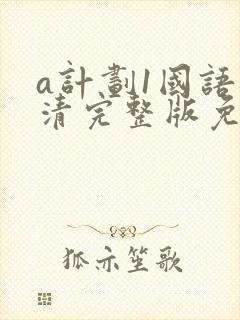 a計劃1國語
清完整版免
狐亦笙歌